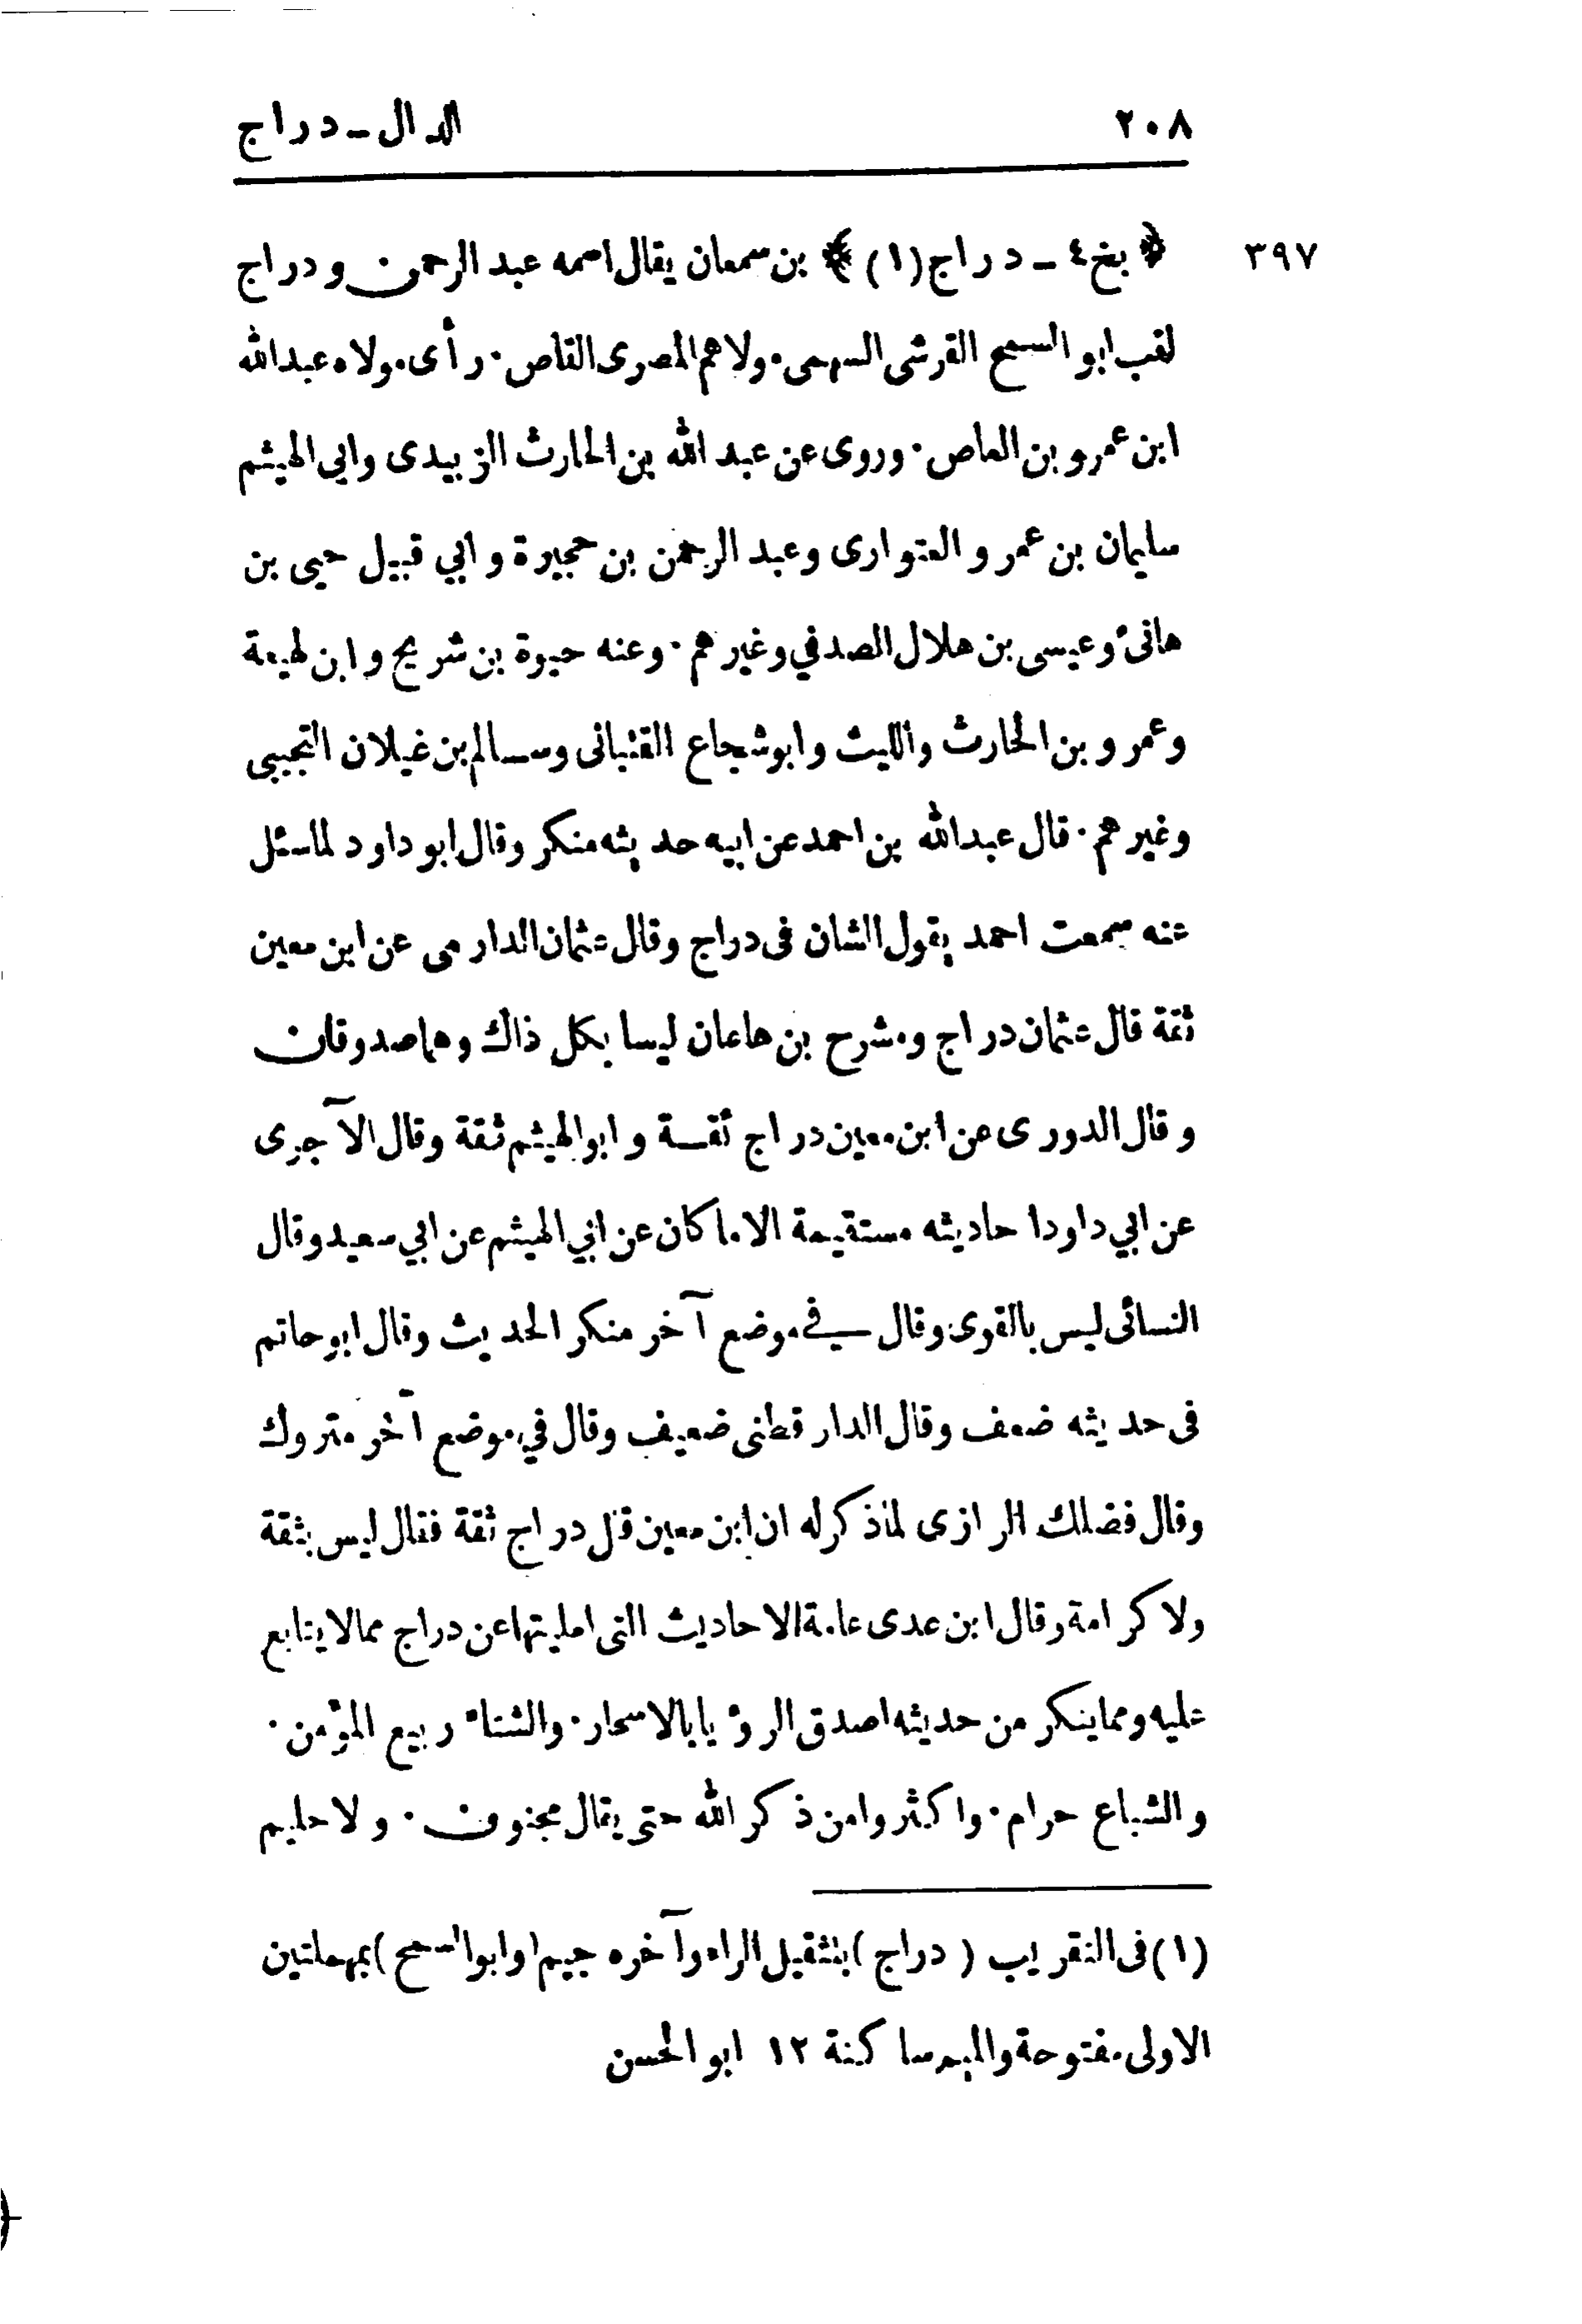 ٢٠٨ الدال - دراج
٣٩٧ ﴿ بخ ٤ - دراج (١) ﴾ بن سمعان يقال اسمه عبد الرحمن ودراج
لقب ابو السمح القرشى السهمى مولاهم المصرى القاص · رأى مولاه عبد الله
ابن عمرو بن العاص · وروى عن عبد الله بن الحارث الزبيدى وابي الهيثم
سليمان بن عمرو العتوارى وعبد الرحمن بن حجيرة وابي قبيل حيى بن
هانئ وعيسى بن هلال الصدفي وغيرهم · وعنه حيوة بن شريح وابن لهيعة
وعمرو بن الحارث والليث وابو شجاع القتبانى وسالم بن غيلان التجيبى
وغيرهم · قال عبد الله بن احمد عن ابيه حديثه منكر وقال ابو داود لما سئل
عنه سمعت احمد يقول الشان فى دراج وقال عثمان الدارمى عن ابن معين
ثقة قال عثمان دراج ومشرح بن هاعان ليسا بكل ذاك وهما صدوقان
وقال الدورى عن ابن معين دراج ثقة وابو الهيثم ثقة وقال الآجرى
عن ابي داود احاديثه مستقيمة الا ما كان عن ابي الهيثم عن ابي سعيد وقال
النسائى ليس بالقوى وقال في موضع آخر منكر الحديث وقال ابو حاتم
فى حديثه ضعف وقال الدارقطنى ضعيف وقال في موضع آخر متروك
وقال فضلك الرازى لما ذكر له ان ابن معين قال دراج ثقة فقال ليس بثقة
ولا كرامة وقال ابن عدى عامة الاحاديث التى امليتها عن دراج مما لا يتابع
عليه ومما ينكر من حديثه اصدق الرؤيا بالاسحار · والشتاء ربيع المؤمن ·
والشباع حرام · واكثروا من ذكر الله حتى يقال مجنون · ولا حليم
(١) فى التقريب ( دراج ) بتثقيل الراء وآخره جيم ( وابو السمح ) بمهملتين
الاولى مفتوحة والميم ساكنة ١٢ ابو الحسن